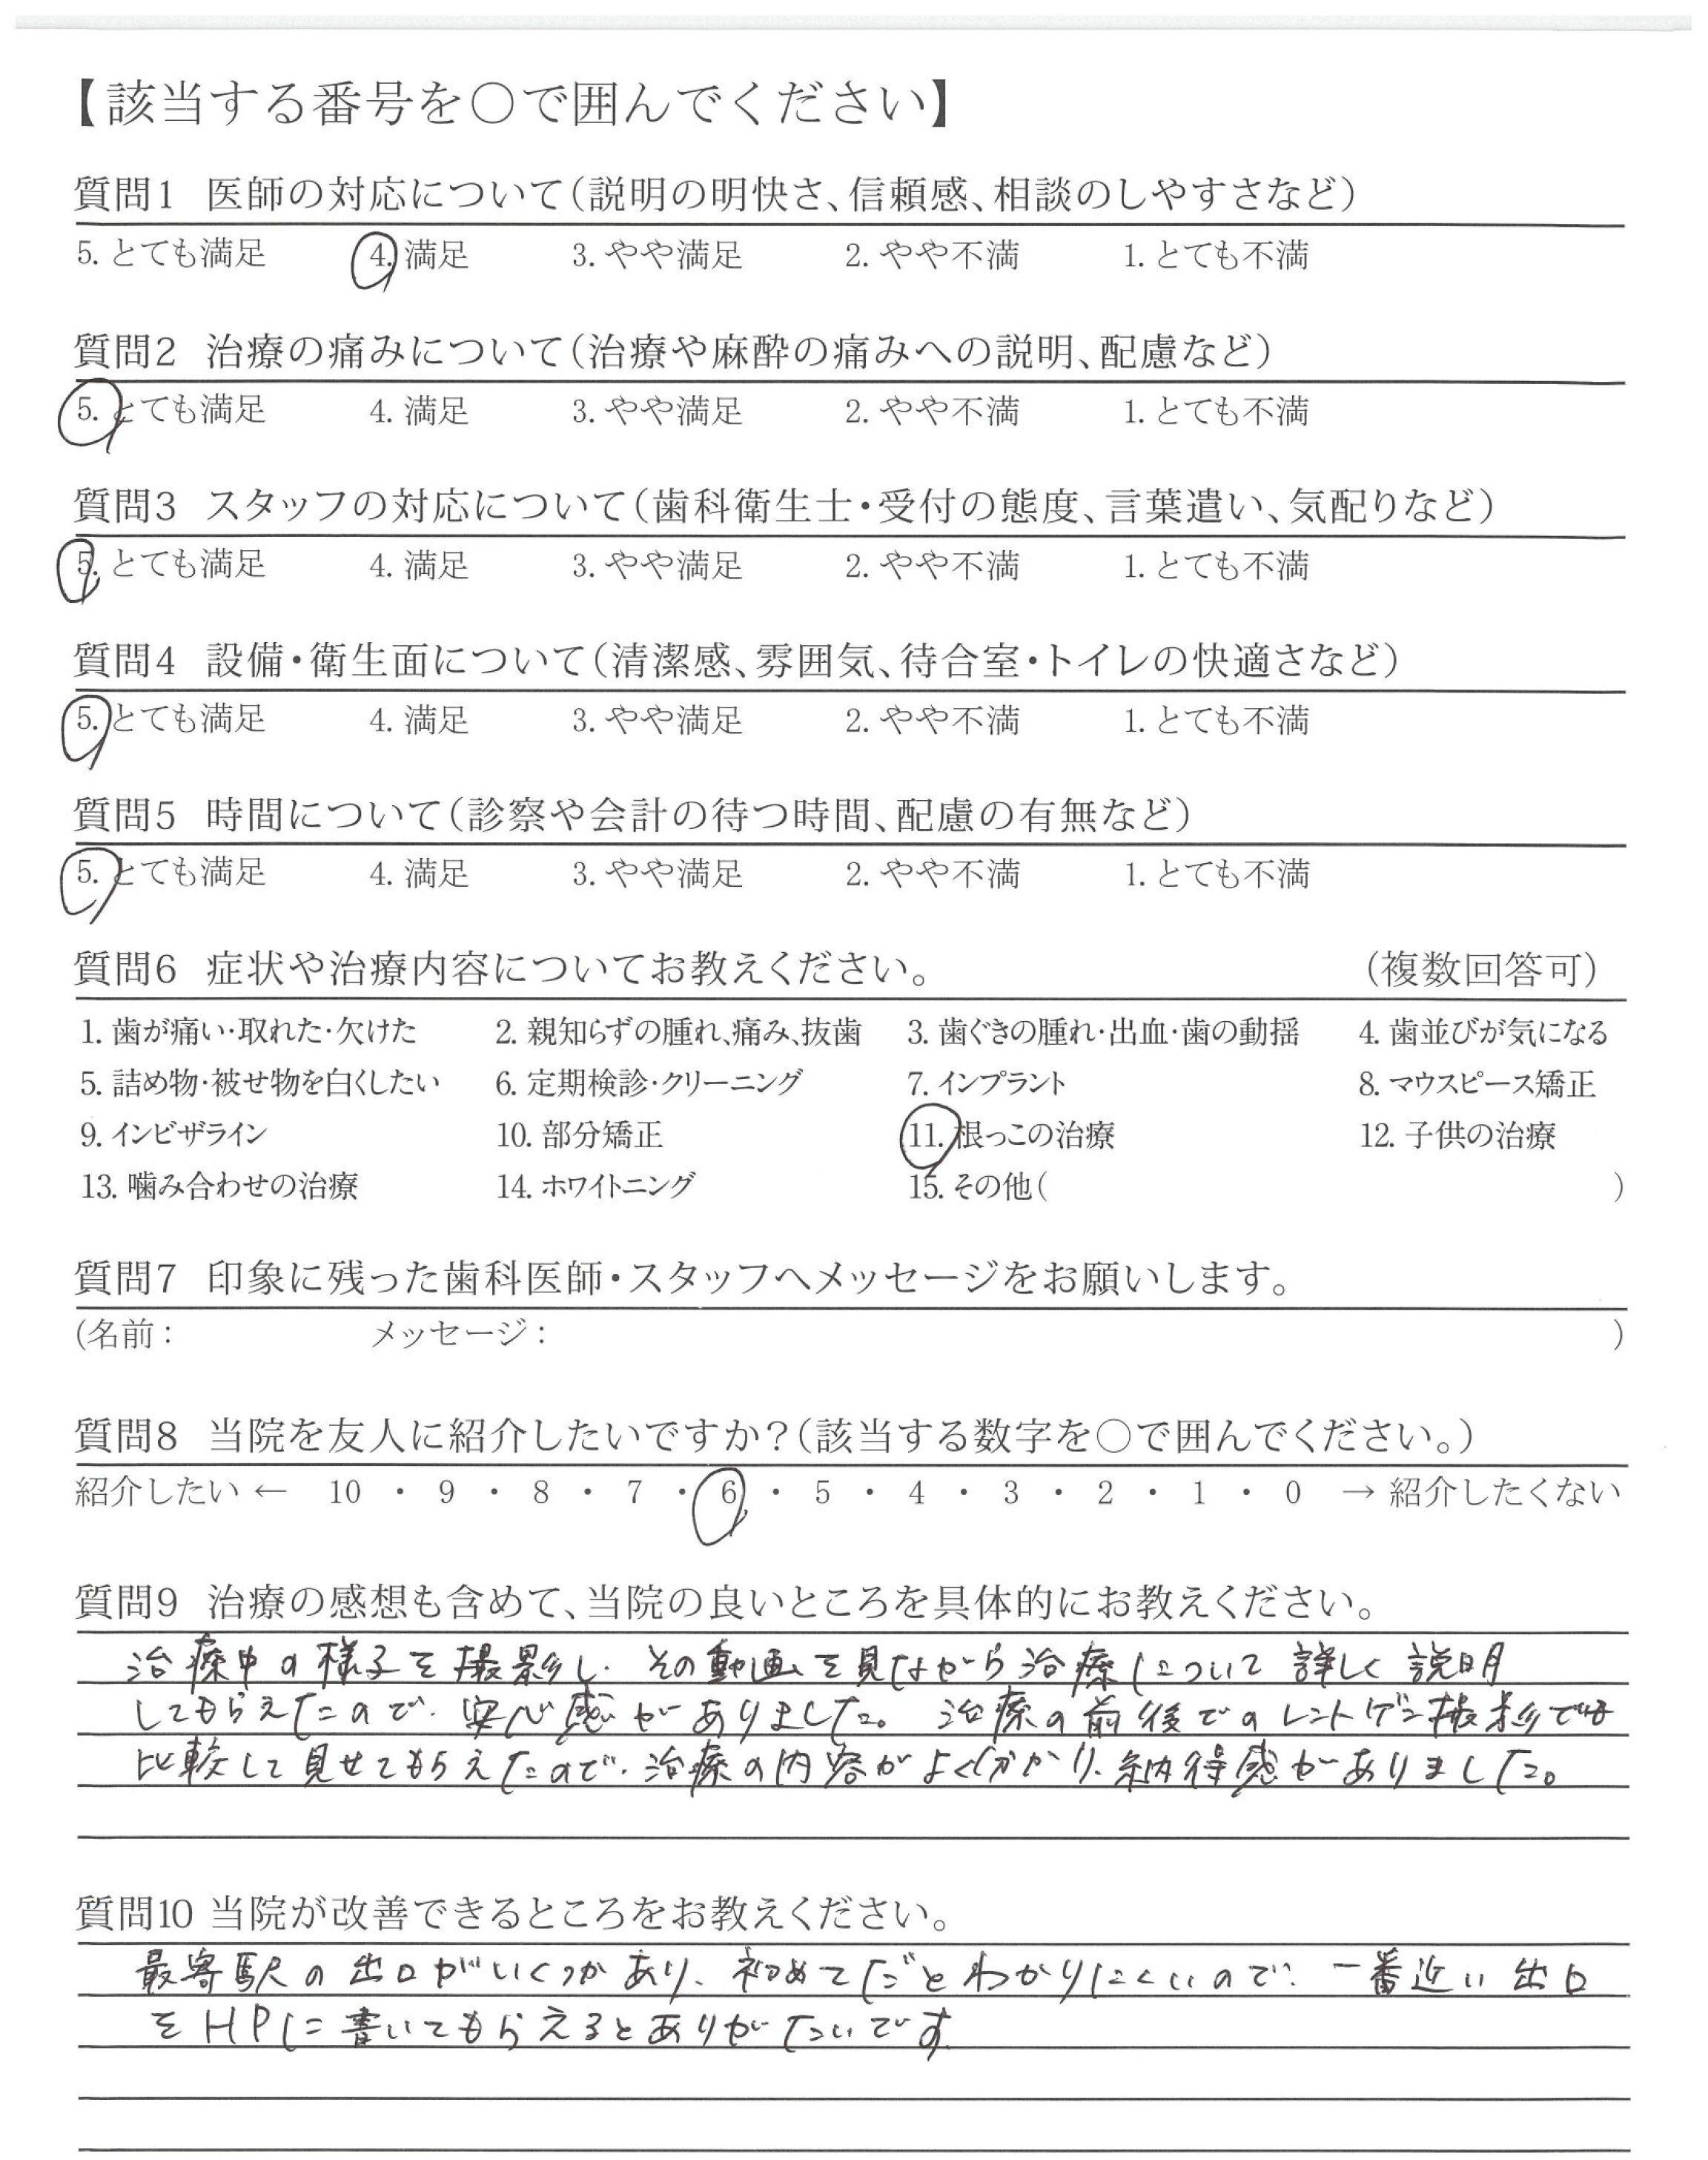 【該当する番号を○で囲んでください】
質問1 医師の対応について(説明の明快さ、信頼感、相談のしやすさなど)
5. とても満足 4. 満足 3. やや満足 2. やや不満 1. とても不満
質問2 治療の痛みについて(治療や麻酔の痛みへの説明、配慮など)
5. とても満足 4. 満足 3. やや満足 2. やや不満 1. とても不満
質問3 スタッフの対応について(歯科衛生士・受付の態度、言葉遣い、気配りなど)
5. とても満足 4. 満足 3. やや満足 2. やや不満 1. とても不満
質問4 設備・衛生面について(清潔感、雰囲気、待合室・トイレの快適さなど)
5. とても満足 4. 満足 3. やや満足 2. やや不満 1. とても不満
質問5 時間について(診察や会計の待つ時間、配慮の有無など)
5. とても満足 4. 満足 3. やや満足 2. やや不満 1. とても不満
質問6 症状や治療内容についてお教えください。 (複数回答可)
1. 歯が痛い・取れた・欠けた 2. 親知らずの腫れ、痛み、抜歯 3. 歯ぐきの腫れ・出血・歯の動揺 4. 歯並びが気になる
5. 詰め物・被せ物を白くしたい 6. 定期検診・クリーニング 7. インプラント 8. マウスピース矯正
9. インビザライン 10. 部分矯正 11. 根っこの治療 12. 子供の治療
13. 噛み合わせの治療 14. ホワイトニング 15. その他( )
質問7 印象に残った歯科医師・スタッフへメッセージをお願いします。
(名前: メッセージ: )
質問8 当院を友人に紹介したいですか?(該当する数字を○で囲んでください。)
紹介したい ← 10 ・ 9 ・ 8 ・ 7 ・ 6 ・ 5 ・ 4 ・ 3 ・ 2 ・ 1 ・ 0 → 紹介したくない
質問9 治療の感想も含めて、当院の良いところを具体的にお教えください。
治療中の様子を撮影し、その動画を見ながら治療について詳しく説明
してもらえたので、安心感がありました。 治療の前後でのレントゲン撮影でも
比較して見せてもらえたので、治療の内容がよく分かり、納得感がありました。
質問10 当院が改善できるところをお教えください。
最寄駅の出口がいくつかあり、初めてだとわかりにくいので、一番近い出口
をHPに書いてもらえるとありがたいです。